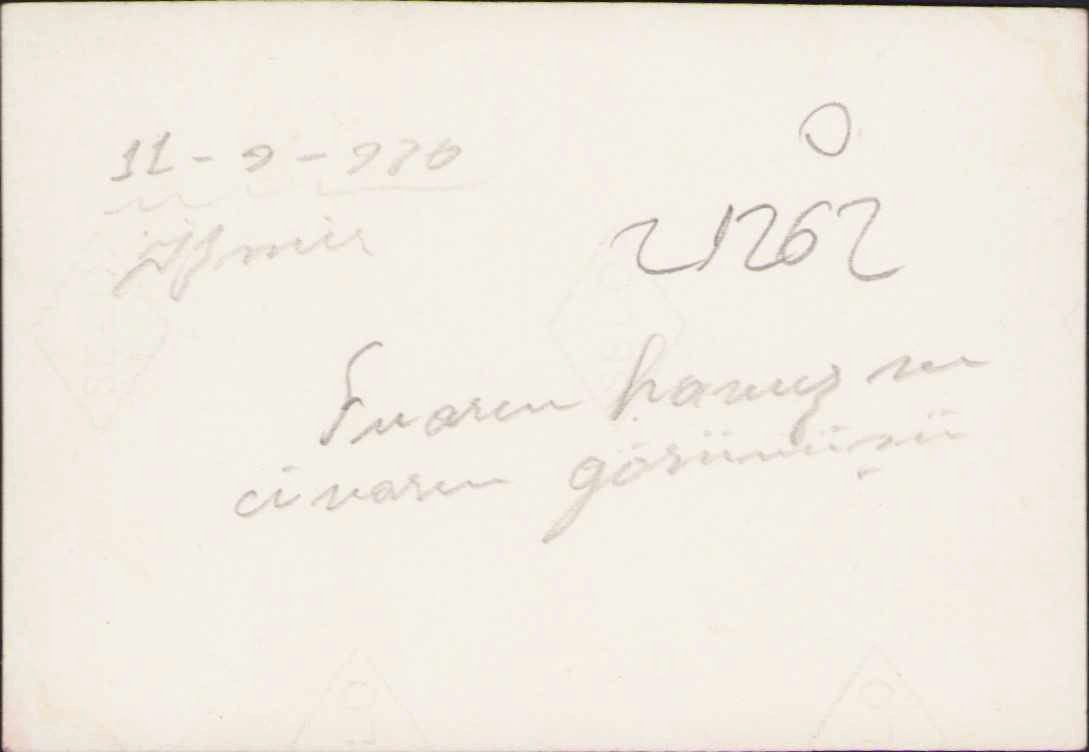 11-9-936
İzmir
O
21262
Fuarın havuz ve
civarın görünüşü